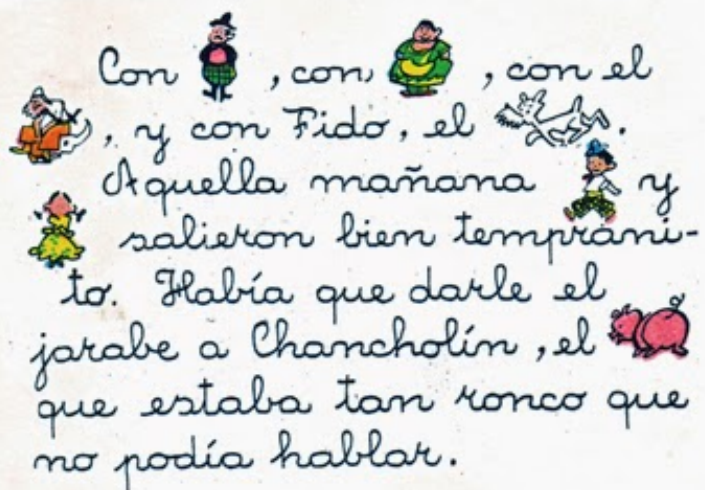 Con , con , con el
, y con Fido, el .
Aquella mañana y
salieron bien temprani-
to. Había que darle el
jarabe a Chancholín, el
que estaba tan ronco que
no podía hablar.